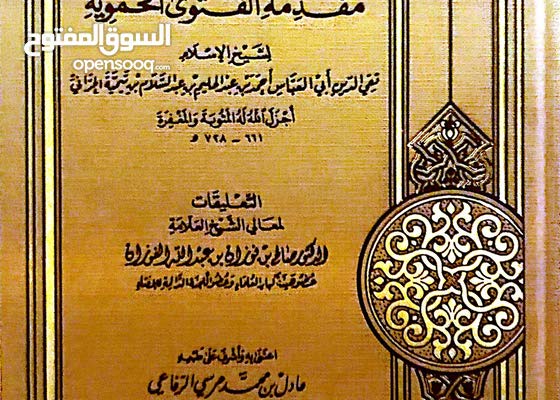 مقدمة الفتوى الحموية
السوق المفتوح
opensooq.com
لشيخ الإسلام
تقي الدين أبي العباس أحمد بن عبد الحليم بن عبد السلام بن تيمية الحراني
أجزل الله له المثوبة والمغفرة
٦٦١ - ٧٢٨ هـ
التعليقات
لمعالي الشيخ العلامة
الدكتور صالح بن فوزان بن عبد الله الفوزان
عضو هيئة كبار العلماء وعضو اللجنة الدائمة للإفتاء
اعتنى به وأشرف على طبعه
عادل بن محمد مرسي الرفاعي